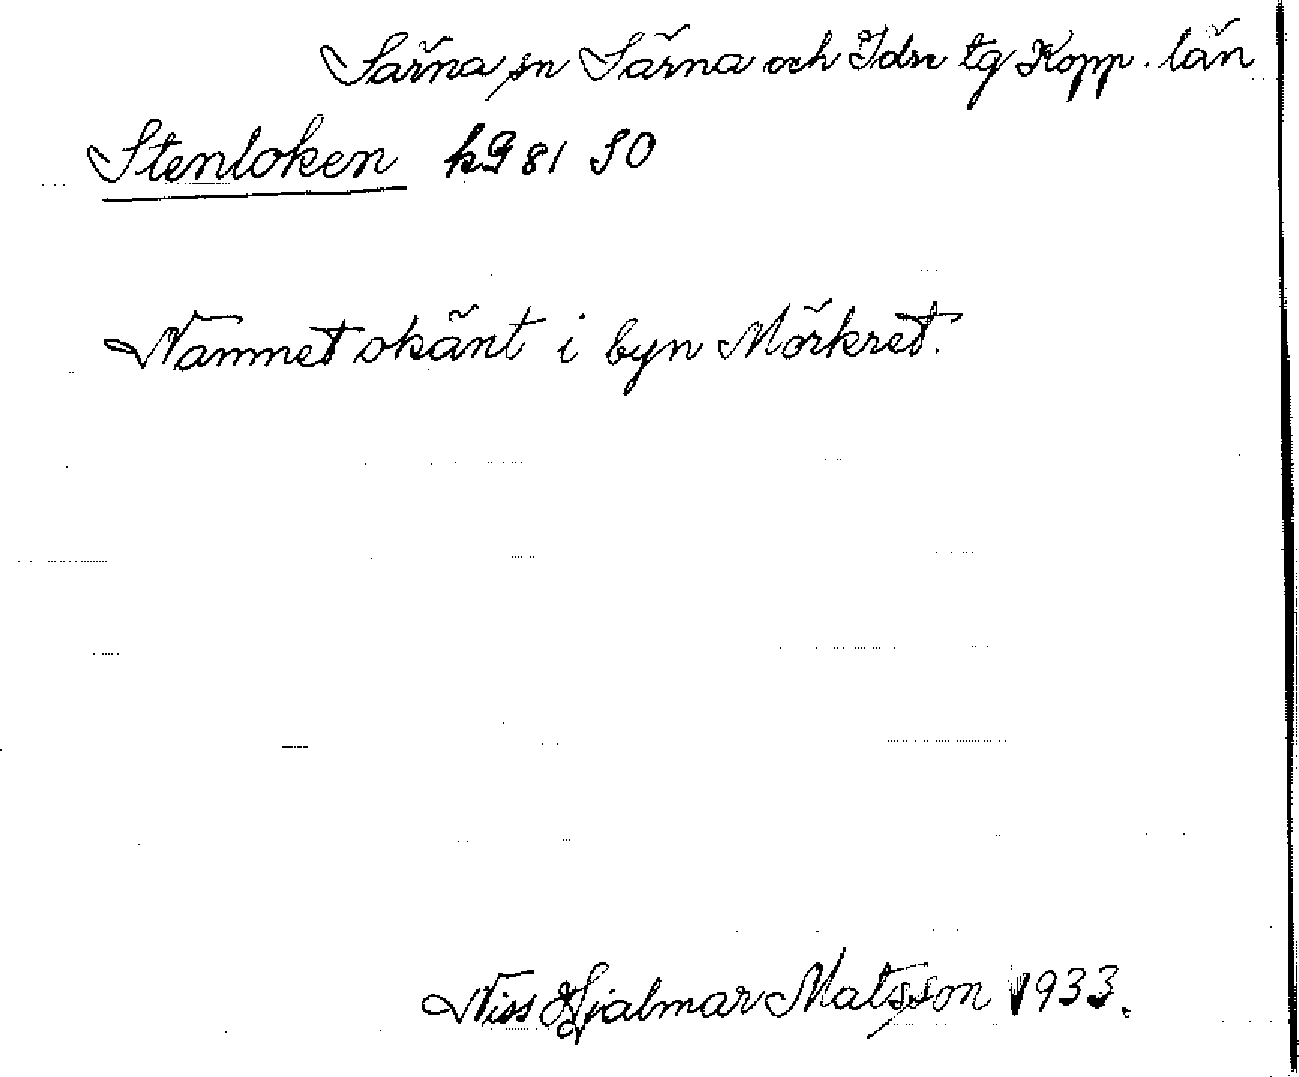 Särna sn Särna och Idre tg Kopp. län
Stenloken k9 81 SO
Namnet okänt i byn Mörkret.
Niss Hjalmar Matsson 1933.